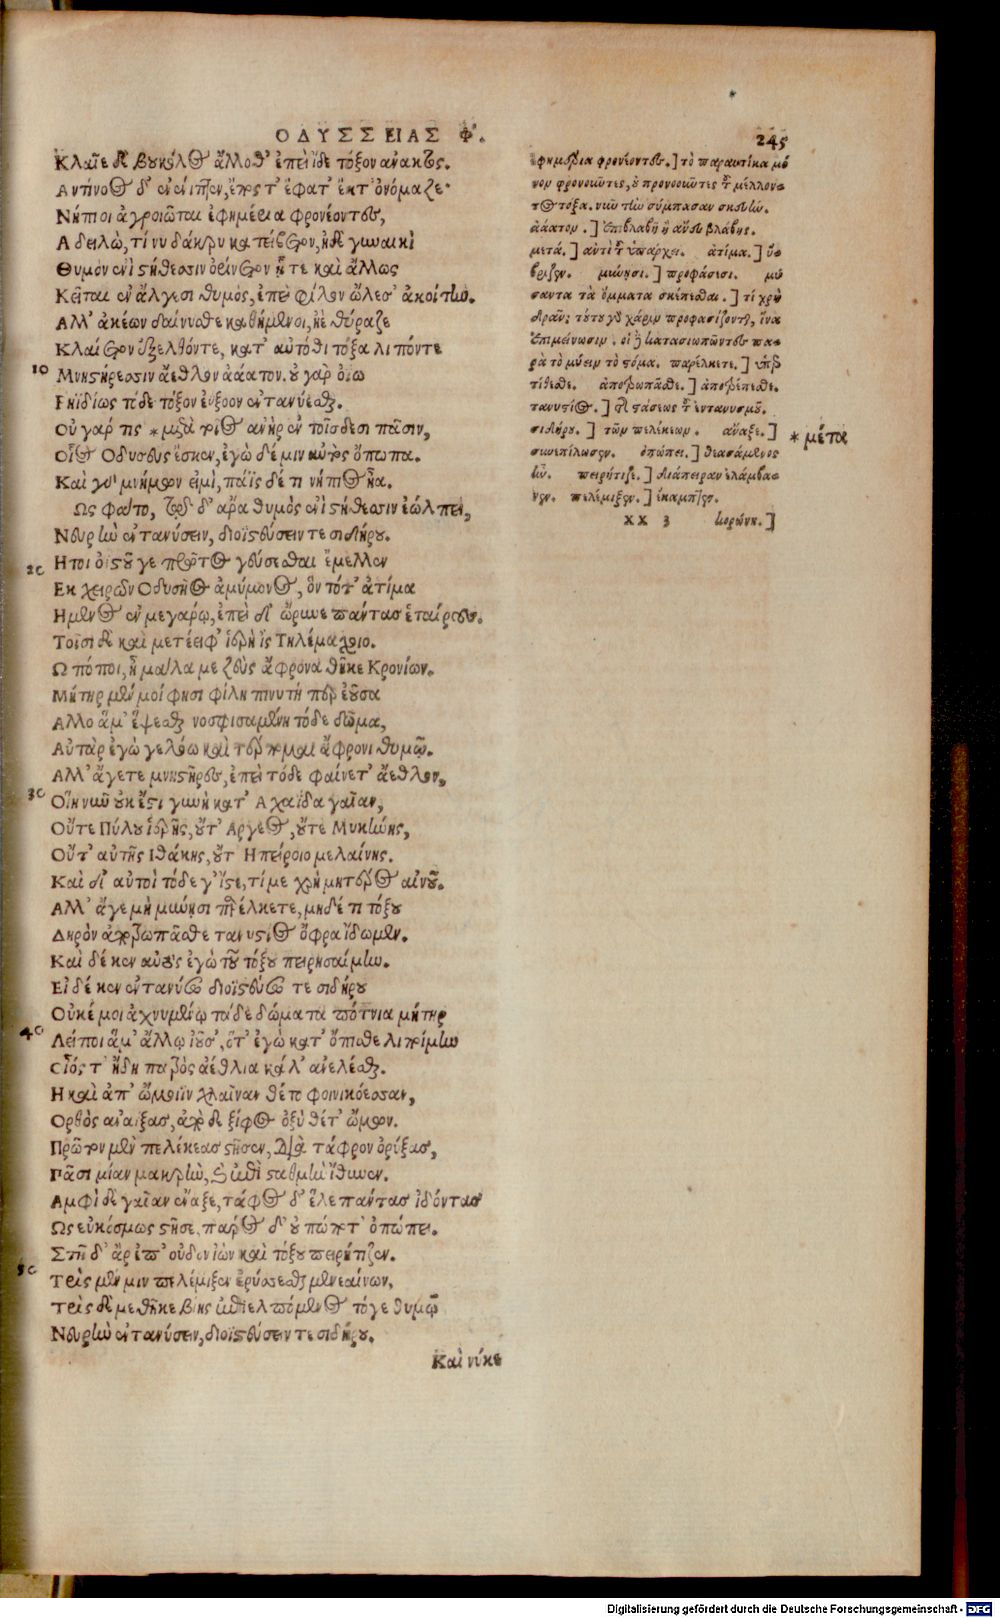 ΟΔΥΣΣΕΙΑΣ Φ.
245
Κλαῖε δὲ βουκόλος ἄλλοθ' ἐπεὶ ἴδε τόξον ἄνακτος.
Αντίνοος δ' ἐνένιπτεν, ἔπος τ' ἔφατ' ἔκ τ' ὀνόμαζε·
Νήπιοι ἀγροιῶται ἐφημέρια φρονέοντες,
Α δειλὼ, τί νυ δάκρυ κατείβετον, ἠδὲ γυναικὶ
Θυμὸν ἐνὶ στήθεσσιν ὀρίνετον ᾗ τε καὶ ἄλλως
Κεῖται ἐν ἄλγεσι θυμὸς, ἐπεὶ φίλον ὤλεσ' ἀκοίτην.
Αλλ' ἀκέων δαίνυσθε καθήμενοι, ἠὲ θύραζε
Κλαίετον ἐξελθόντε, κατ' αὐτόθι τόξα λιπόντε
10 Μνηστήρεσσιν ἄεθλον ἀάατον. οὐ γὰρ ὀΐω
Ρηϊδίως τόδε τόξον ἐύξοον ἐντανύεσθαι.
Οὐ γάρ τις * μετὰ τοῖος ἀνὴρ ἐν τοίσδεσι πᾶσιν,
Οἷος Οδυσσεὺς ἔσκεν, ἐγὼ δέ μιν αὐτὸς ὄπωπα.
Καὶ γὰρ μνήμων εἰμὶ, πάϊς δ' ἔτι νήπιος ἦα.
Ως φάτο, τῷ δ' ἄρα θυμὸς ἐνὶ στήθεσσιν ἐώλπει,
Νευρὴν ἐντανύσειν, διοϊστεύσειν τε σιδήρου.
20 Ητοι ὀϊστοῦ γε πρῶτος γεύσεσθαι ἔμελλεν
Εκ χειρῶν Οδυσῆος ἀμύμονος, ὃν τότ' ἀτίμα
Ημενος ἐν μεγάρῳ, ἐπὶ δ' ὤρνυε πάντας ἑταίρους.
Τοῖσι δὲ καὶ μετέειφ' ἱερὴ ἲς Τηλέμαχοιο.
Ω πόποι, ἦ μάλα με Ζεὺς ἄφρονα θῆκε Κρονίων.
Μήτηρ μέν μοί φησι φίλη πινυτή περ ἐοῦσα
Αλλῳ ἅμ' ἕψεσθαι νοσφισαμένη τόδε δῶμα,
Αὐτὰρ ἐγὼ γελόω καὶ τέρπομαι ἄφρονι θυμῷ.
Αλλ' ἄγετε μνηστῆρες, ἐπεὶ τόδε φαίνετ' ἄεθλον,
30 Οἵη νῦν οὐκ ἔστι γυνὴ κατ' Αχαΐδα γαῖαν,
Οὔτε Πύλου ἱερῆς, οὔτ' Αργεος, οὔτε Μυκήνης,
Οὔτ' αὐτῆς Ιθάκης, οὔτ' Ηπείροιο μελαίνης.
Καὶ δ' αὐτοὶ τόδε γ' ἴστε, τί με χρὴ μητέρος αἴνου.
Αλλ' ἄγε μὴ μύνησι παρέλκετε, μηδέ τι τόξου
Δηρὸν ἀποτρωπᾶσθε τανυστύος ὄφρα ἴδωμεν.
Καὶ δέ κεν αὐτὸς ἐγὼ τοῦ τόξου πειρησαίμην.
Εἰ δέ κεν ἐντανύσω διοϊστεύσω τε σιδήρου
Οὐ κέ μοι ἀχνυμένῳ τάδε δώματα πότνια μήτηρ
40 Λείποι ἅμ' ἄλλῳ ἰοῦσ', ὅτ' ἐγὼ κατ' ὄπισθε λιποίμην
Οἷός τ' ἤδη πατρὸς ἀέθλια κάλ' ἀνελέσθαι.
Η καὶ ἀπ' ὤμοιϊν χλαῖναν θέτο φοινικόεσσαν,
Ορθὸς ἀναΐξας, ἀπὸ δὲ ξίφος ὀξὺ θέτ' ὤμων.
Πρῶτον μὲν πελέκεας στῆσεν, διὰ τάφρον ὀρύξας,
Πᾶσι μίαν μακρὴν, καὶ ἐπὶ στάθμην ἴθυνεν.
Αμφὶ δὲ γαῖαν ἔναξε, τάφος δ' ἕλε πάντας ἰδόντας
Ως εὐκόσμως στῆσε, πάρος δ' οὐ πώποτ' ὀπώπει.
Στῆ δ' ἄρ' ἐπ' οὐδὸν ἰὼν καὶ τόξου πειρήτιζεν.
50 Τρὶς μέν μιν πελέμιξεν ἐρύσσεσθαι μενεαίνων,
Τρὶς δὲ μεθῆκε βίης ἐπιελπόμενος τόγε θυμῷ
Νευρὴν ἐντανύσειν, διοϊστεύσειν τε σιδήρου.
Καὶ νύκε
ἐφημέρια φρονέοντες.] τὸ παραυτίκα μό
νον φρονοιῶτες, οὐ προνοοιῶτες τοῦ μέλλον-
τος τόξα. νῦν τὴν σύμπασαν σκευήν.
ἀάατον.] ἐπιβλαβῆ ἢ ἄνευ βλάβης.
μετά.] ἀντὶ τοῦ ὑπάρχει. ἀτίμα.] ὕ-
βριζεν. μύνησι.] προφάσεσι. μύ
σαντα τὰ ὄμματα σκέπεσθαι.] τί χρὴ
δρᾶν; τούτου γὰρ χάριν προφασίζονται, ἵνα
ἐπιμείνωσιν. οἱ δὲ κατασιωπῶντες πα-
ρὰ τὸ μύειν τὸ στόμα. παρέλκετε.] ὑπερ
τίθεσθε. ἀποτρωπᾶσθε.] ἀποτρέπεσθε.
τανυστύος.] τῆς τάσεως τοῦ ἐντανυσμοῦ.
σιδήρου.] τῶν πελέκεων. ἄναξε.]
συνεπίλωσεν. ὀπώπει.] θεασάμενος
ἦν. πειρήτιζε.] διάπειραν ἐλάμβα-
νεν. πελέμιξεν.] ἐκαμπτεν.
XX 3 κορώνη.]
* μέτα
Digitalisierung gefördert durch die Deutsche Forschungsgemeinschaft - DFG